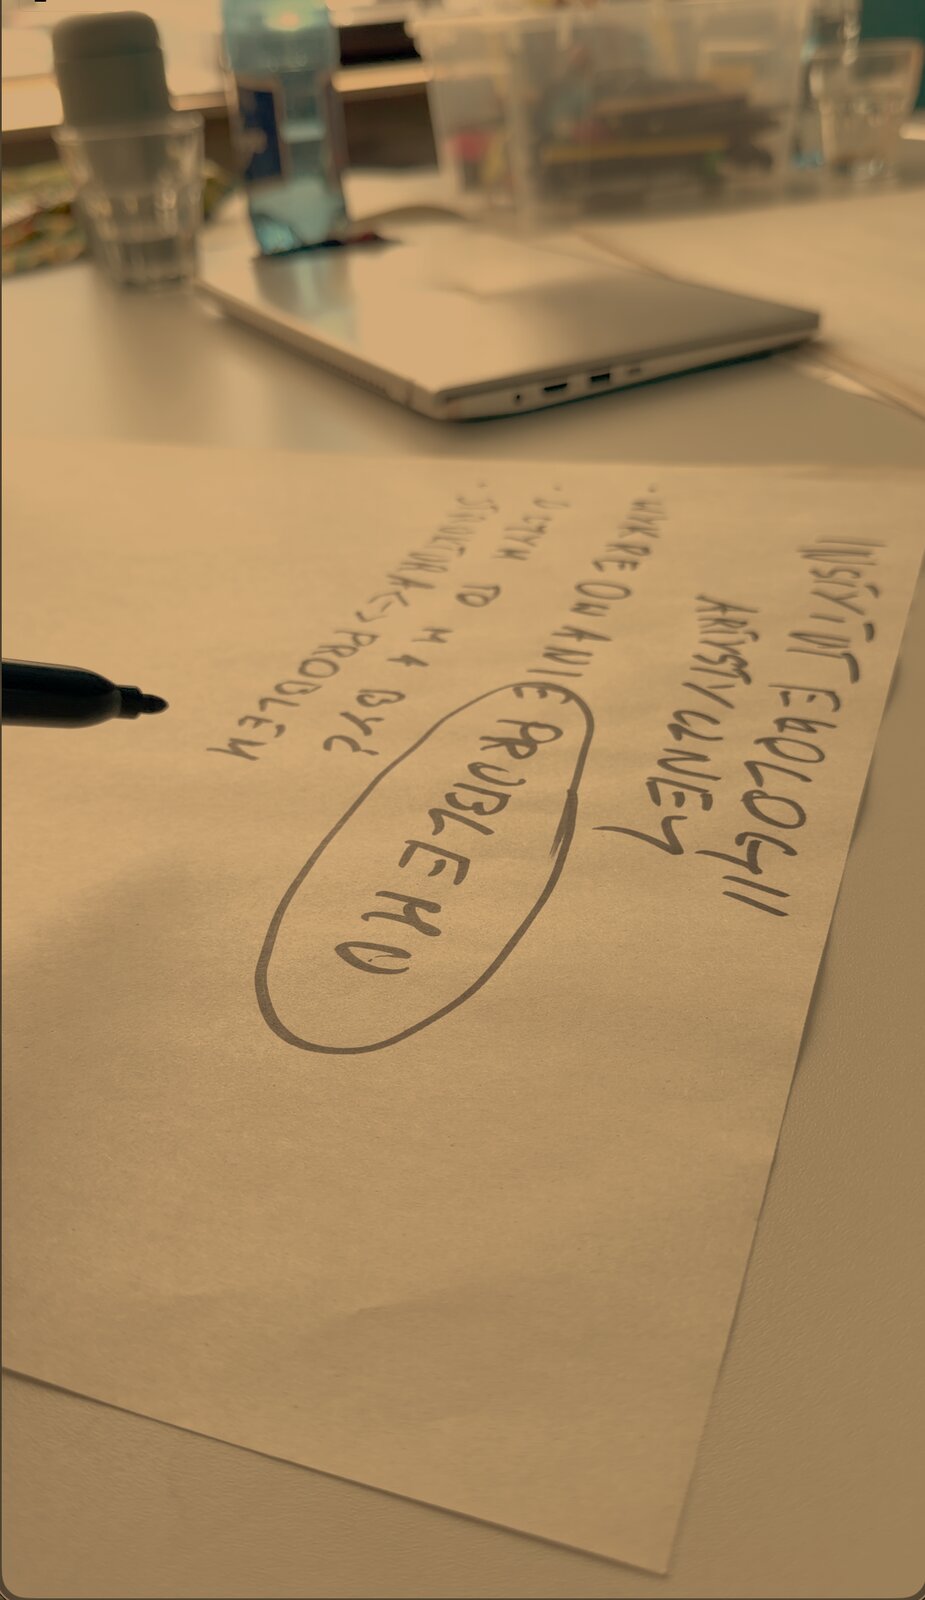 INSTYTUT EKOLOGII
ARTYSTYCZNEJ
· WYKREOWANIE PROBLEMU
· TO MA BYĆ
· STRUKTURA <-> PROBLEM